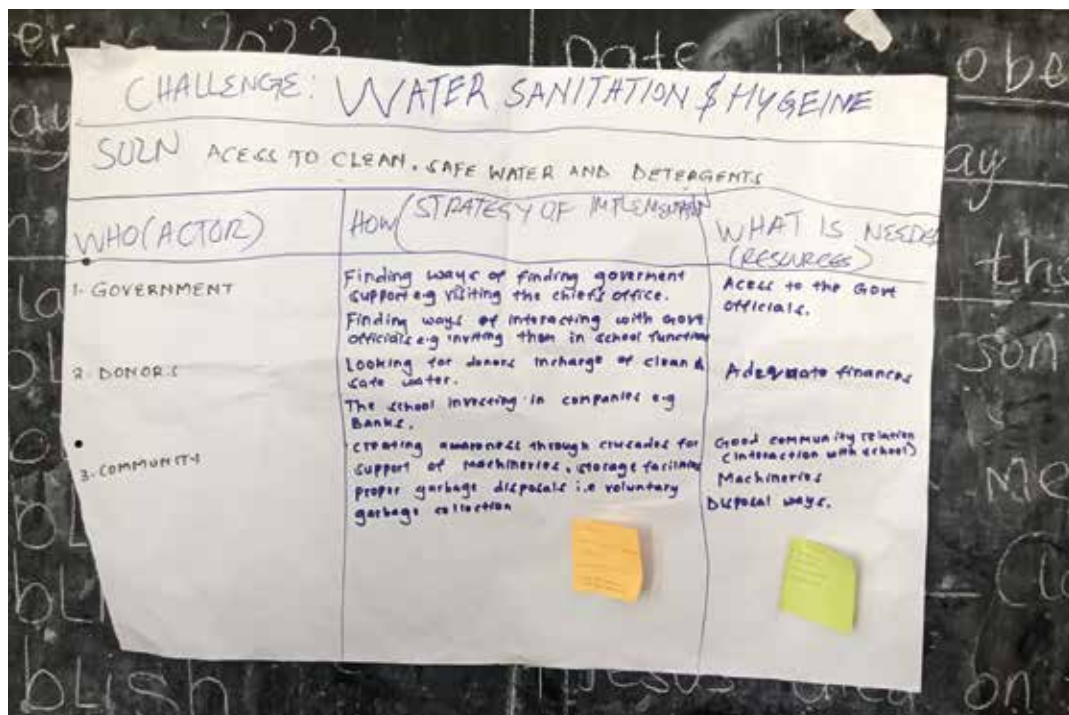 2023
Date
obe
CHALLENGE: WATER SANITATION $ HYGEINE
SOLN ACESS TO CLEAN, SAFE WATER AND DETERGENTS
ay
WHO (ACTOR)
HOW (STRATEGY OF IMPLEMENTATION
WHAT IS NEEDED
(RESOURCES)
1. GOVERNMENT
Finding ways of finding goverment
support e.g visiting the chief's office.
Finding ways of interacting with Govt
officials e.g inviting them in school function
Acess to the Govt
officials.
2. DONORS
Looking for donors incharge of clean &
safe water.
The school investing in companies e.g
Banks.
Adequate finances
3. COMMUNITY
creating awareness through crusades for
support of machineries, storage facilities
proper garbage disposals i.e voluntary
garbage collection
Good community relation
(interaction with school)
Machineries
Disposal ways.
the
son
is
me
bl
blish
Jesus died on